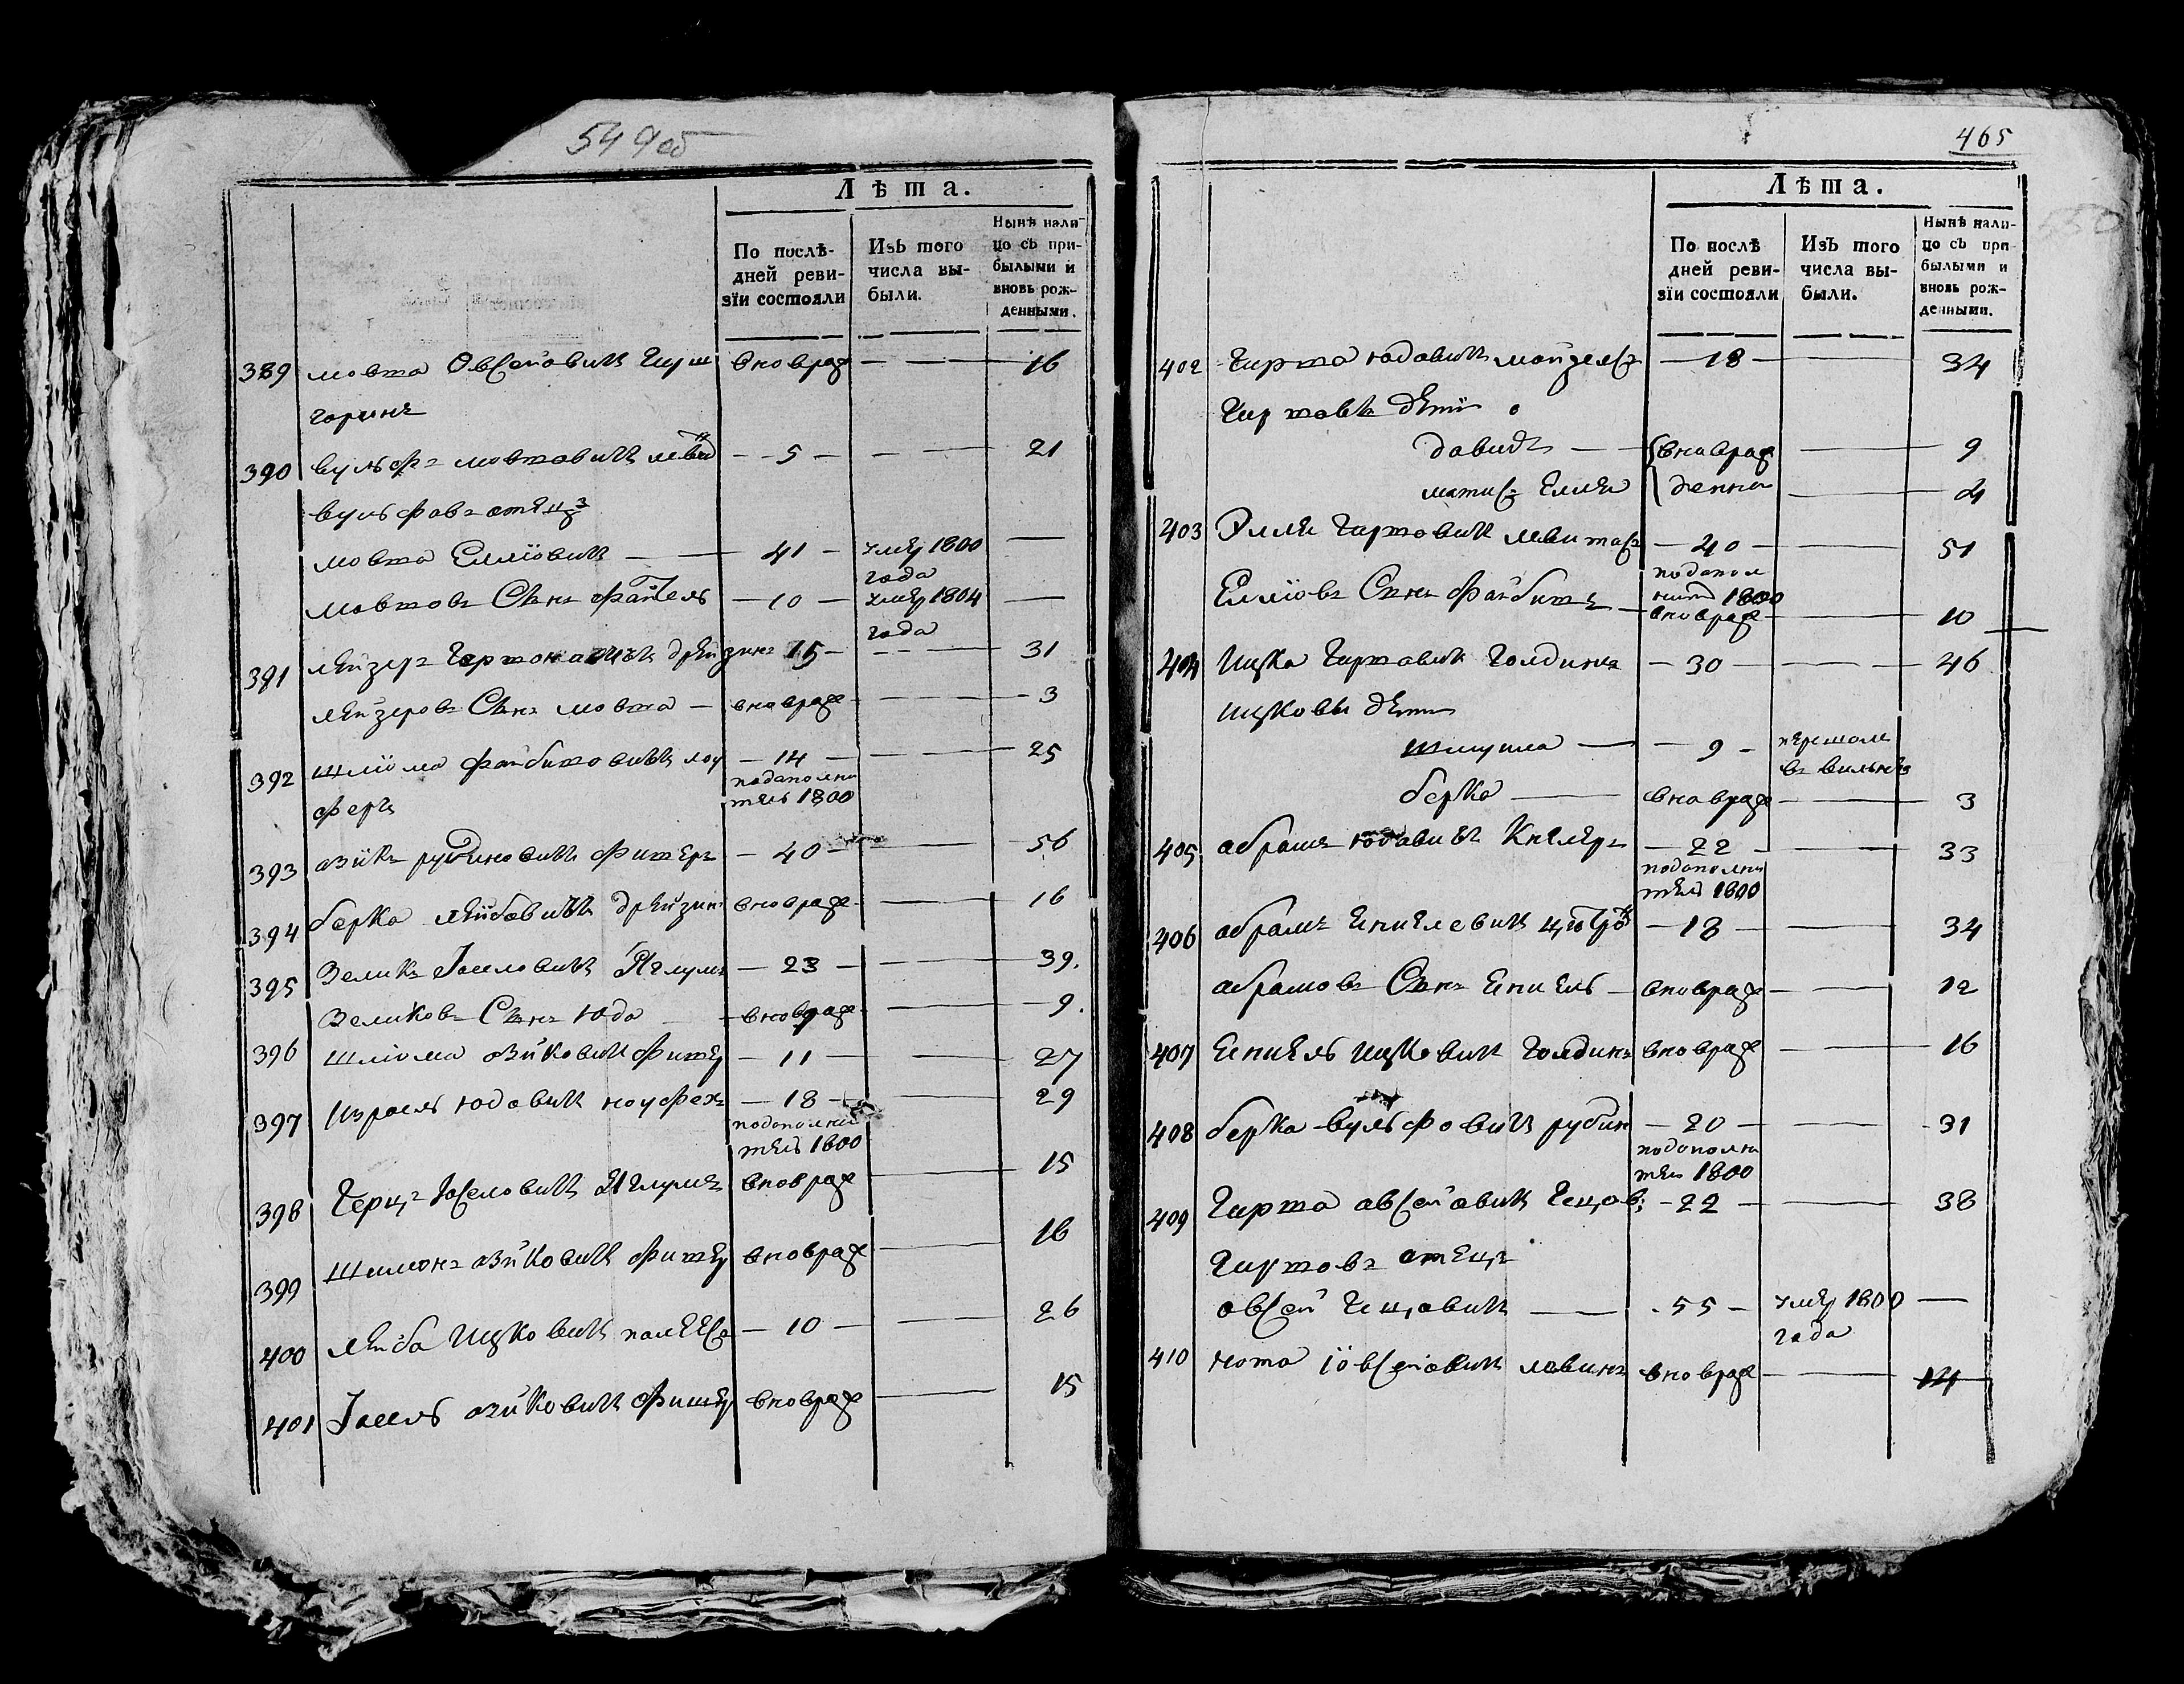 549об
Лѣта.
По послѣ-
дней реви-
зїи состояли
Изъ того
числа вы-
были.
Нынѣ нали-
цо съ при-
былыми и
вновь рож-
денными.
389 мовша Овсеіовичъ Гирш вноврож 16
горинъ
390 вульфъ мовшовичъ левин 5 21
вульфовъ отецъ
мовша Еллїовичъ 41 умер 1800
года
мовшовъ Сынъ файтель 10 умер 1804
года
391 лейзеръ дрейзинъ 15 31
лейзеровъ Сынъ мовша вноврож 3
392 шлїома файбишовичъ 14 25
подополни
тель 1800
феръ
393 азикъ рубиновичъ фишеръ 40 56
394 берка лейбовичъ дрейзин вноврож 16
395 Зеликъ Іоселовичъ 23 39.
Зеликовъ Сынъ юда вноврож 9.
396 шліома азиковичъ фишер 11 27
397 Израель юдовичъ 18 29
подополни
тель 1800
398 Герцъ Іоселовичъ вноврож 15
399 Шимонъ азиковичъ фишер вноврож 16
400 лейба Ицковичъ 10 26
401 Іосель азиковичъ фишер вноврож 15
465
Лѣта.
По послѣ
дней реви-
зїи состояли
Изъ того
числа вы-
были.
Нынѣ нали-
цо съ при
былыми и
вновь рож-
денными.
402 Гирша юдовичъ майзелсъ 18 34
Гиршовы дети
давидъ вноврож 9
матисъ Елля денни 4
403 Элля Гиршовичъ левитасъ 40 51
подопол
нит 1800
Еллїовъ Сынъ файбишъ вноврож 10
404 Ицка Гиршовичъ Голдинъ 30 46
ицковы дети
шмуила 9 перешол
въ вильнъ
берка вноврож 3
405 абрамъ юдовичъ 22 33
подополни
тель 1800
406 абрамъ Ехиелевичъ 18 34
абрамовъ Сынъ Ехиель вноврож 12
407 Ехиель Ицковичъ Голдинъ вноврож 16
408 берка вульфовичъ рубин 20 31
подополни
тель 1800
409 Гирша авсеіовичъ Гецов: 22 38
Гиршовъ отецъ
авсей Гецовичъ 55 умер 1800
года
410 нота іовсеіовичъ левинъ вноврож 14